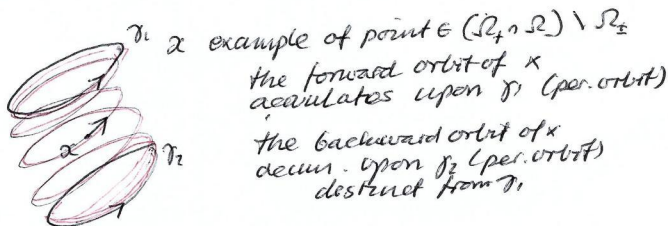 γ₁ x example of point ∈ (Ω₊ ∩ Ω₋) \ Ω±
the forward orbit of x
accumulates upon γ₁ (per. orbit)
x
the backward orbit of x
γ₂ accum. upon γ₂ (per. orbit)
distinct from γ₁